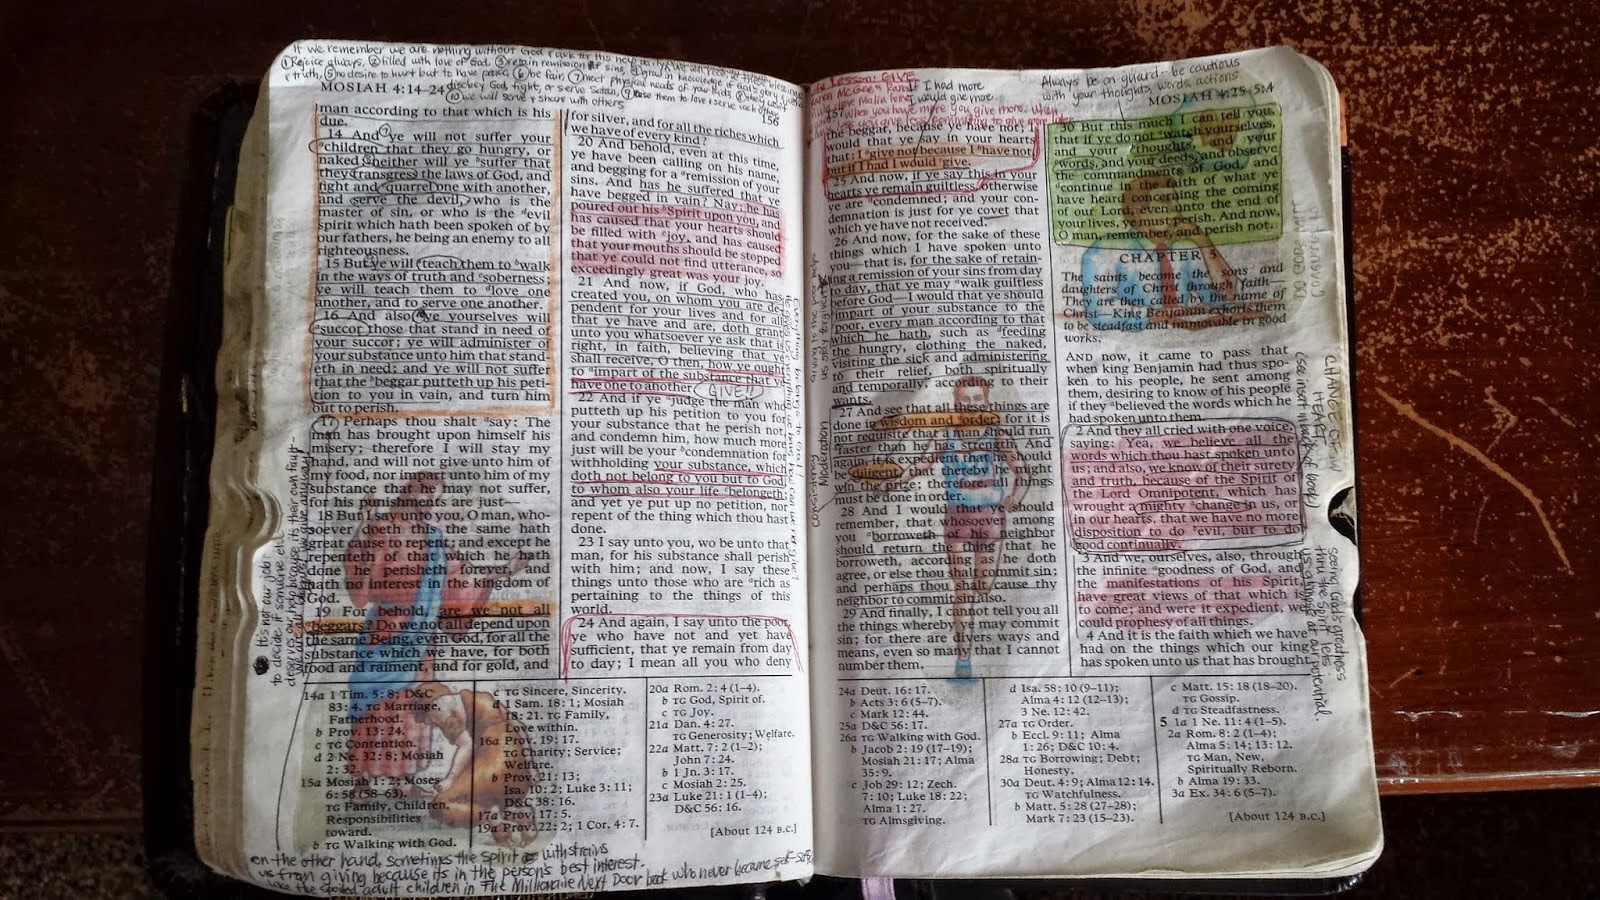 If we remember we are nothing without God
① Rejoice always, ② filled with love of God, ③ retain remission of sins, ④ grow in knowledge of God's glory
& truth, ⑤ no desire to hurt but to have peace, ⑥ be fair, ⑦ meet physical needs of your kids
disobey God, fight, or serve Satan, ⑨
⑩ we will serve & share with others
MOSIAH 4:14–24
156
man according to that which is his
due.
14 And ye will not suffer your
children that they go hungry, or
naked; neither will ye suffer that
they transgress the laws of God, and
fight and quarrel one with another,
and serve the devil, who is the
master of sin, or who is the devil
spirit which hath been spoken of by
our fathers, he being an enemy to all
righteousness.
15 But ye will teach them to walk
in the ways of truth and soberness;
ye will teach them to love one
another, and to serve one another.
16 And also, ye yourselves will
succor those that stand in need of
your succor; ye will administer of
your substance unto him that stand-
eth in need; and ye will not suffer
that the beggar putteth up his peti-
tion to you in vain, and turn him
out to perish.
17 Perhaps thou shalt say: The
man has brought upon himself his
misery; therefore I will stay my
hand, and will not give unto him of
my food, nor impart unto him of my
substance that he may not suffer,
for his punishments are just—
18 But I say unto you, O man, who-
soever doeth this the same hath
great cause to repent; and except he
repenteth of that which he hath
done he perisheth forever, and
hath no interest in the kingdom of
God.
19 For behold, are we not all
beggars? Do we not all depend upon
the same Being, even God, for all the
substance which we have, for both
food and raiment, and for gold, and
for silver, and for all the riches which
we have of every kind?
20 And behold, even at this time,
ye have been calling on his name,
and begging for a remission of your
sins. And has he suffered that ye
have begged in vain? Nay; he has
poured out his Spirit upon you, and
has caused that your hearts should
be filled with joy, and has caused
that your mouths should be stopped
that ye could not find utterance, so
exceedingly great was your joy.
21 And now, if God, who has
created you, on whom you are de-
pendent for your lives and for all
that ye have and are, doth grant
unto you whatsoever ye ask that is
right, in faith, believing that ye
shall receive, O then, how ye ought
to impart of the substance that ye
have one to another. GIVE!!
22 And if ye judge the man who
putteth up his petition to you for
your substance that he perish not,
and condemn him, how much more
just will be your condemnation for
withholding your substance, which
doth not belong to you but to God,
to whom also your life belongeth;
and yet ye put up no petition, nor
repent of the thing which thou hast
done.
23 I say unto you, wo be unto that
man, for his substance shall perish
with him; and now, I say these
things unto those who are rich as
pertaining to the things of this
world.
24 And again, I say unto the poor,
ye who have not and yet have
sufficient, that ye remain from day
to day; I mean all you who deny
It's not our job
to decide if someone else
deserves our help because it's their own fault
14a 1 Tim. 5: 8; D&C
83: 4. TG Marriage,
Fatherhood.
b Prov. 13: 24.
c TG Contention.
d 2 Ne. 32: 8; Mosiah
2: 32.
15a Mosiah 1: 2; Moses
6: 58 (58–63).
TG Family, Children,
Responsibilities
toward.
b TG Walking with God.
c TG Sincere, Sincerity.
d 1 Sam. 18: 1; Mosiah
18: 21. TG Family,
Love within.
16a Prov. 19: 17.
TG Charity; Service;
Welfare.
b Prov. 21: 13;
Isa. 10: 2; Luke 3: 11;
D&C 38: 16.
17a Prov. 17: 5.
19a Prov. 22: 2; 1 Cor. 4: 7.
20a Rom. 2: 4 (1–4).
b TG God, Spirit of.
c TG Joy.
21a Dan. 4: 27.
TG Generosity; Welfare.
22a Matt. 7: 2 (1–2);
John 7: 24.
b 1 Jn. 3: 17.
c Mosiah 2: 25.
23a Luke 21: 1 (1–4);
D&C 56: 16.
[About 124 B.C.]
on the other hand, sometimes the Spirit withstrains
us from giving because its in the person's best interest.
like the spoiled adult children in The Millionaire Next Door book who never became
Lesson: GIVE
If I had more
I would give more
Always be on guard - be cautious
with your thoughts, words, actions
157
MOSIAH 4:25–5:4
the beggar, because ye have not; I
would that ye say in your hearts
that: I give not because I have not,
but if I had I would give.
25 And now, if ye say this in your
hearts ye remain guiltless, otherwise
ye are condemned; and your con-
demnation is just for ye covet that
which ye have not received.
26 And now, for the sake of these
things which I have spoken unto
you—that is, for the sake of retain-
ing a remission of your sins from day
to day, that ye may walk guiltless
before God—I would that ye should
impart of your substance to the
poor, every man according to that
which he hath, such as feeding
the hungry, clothing the naked,
visiting the sick and administering
to their relief, both spiritually
and temporally, according to their
wants.
27 And see that all these things are
done in wisdom and order; for it is
not requisite that a man should run
faster than he has strength. And
again, it is expedient that he should
be diligent, that thereby he might
win the prize; therefore, all things
must be done in order.
28 And I would that ye should
remember, that whosoever among
you borroweth of his neighbor
should return the thing that he
borroweth, according as he doth
agree, or else thou shalt commit sin;
and perhaps thou shalt cause thy
neighbor to commit sin also.
29 And finally, I cannot tell you all
the things whereby ye may commit
sin; for there are divers ways and
means, even so many that I cannot
number them.
consistency
Moderation
30 But this much I can tell you,
that if ye do not watch yourselves,
and your thoughts, and your
words, and your deeds, and observe
the commandments of God, and
continue in the faith of what ye
have heard concerning the coming
of our Lord, even unto the end of
your lives, ye must perish. And now,
O man, remember, and perish not.
CHAPTER 5
The saints become the sons and
daughters of Christ through faith—
They are then called by the name of
Christ—King Benjamin exhorts them
to be steadfast and immovable in good
works.
AND now, it came to pass that
when king Benjamin had thus spo-
ken to his people, he sent among
them, desiring to know of his people
if they believed the words which he
had spoken unto them.
2 And they all cried with one voice,
saying: Yea, we believe all the
words which thou hast spoken unto
us; and also, we know of their surety
and truth, because of the Spirit of
the Lord Omnipotent, which has
wrought a mighty change in us, or
in our hearts, that we have no more
disposition to do evil, but to do
good continually.
3 And we, ourselves, also, through
the infinite goodness of God, and
the manifestations of his Spirit,
have great views of that which is
to come; and were it expedient, we
could prophesy of all things.
4 And it is the faith which we have
had on the things which our king
has spoken unto us that has brought
CHANGE OF
HEART
24a Deut. 16: 17.
b Acts 3: 6 (5–7).
c Mark 12: 44.
25a D&C 56: 17.
26a TG Walking with God.
b Jacob 2: 19 (17–19);
Mosiah 21: 17; Alma
35: 9.
c Job 29: 12; Zech.
7: 10; Luke 18: 22;
Alma 1: 27.
TG Almsgiving.
d Isa. 58: 10 (9–11);
Alma 4: 12 (12–13);
3 Ne. 12: 42.
27a TG Order.
b Eccl. 9: 11; Alma
1: 26; D&C 10: 4.
28a TG Borrowing; Debt;
Honesty.
30a Deut. 4: 9; Alma 12: 14.
TG Watchfulness.
b Matt. 5: 28 (27–28);
Mark 7: 23 (15–23).
c Matt. 15: 18 (18–20).
TG Gossip.
d TG Steadfastness.
5 1a 1 Ne. 11: 4 (1–5).
2a Rom. 8: 2 (1–4);
Alma 5: 14; 13: 12.
TG Man, New,
Spiritually Reborn.
b Alma 19: 33.
3a Ex. 34: 6 (5–7).
[About 124 B.C.]